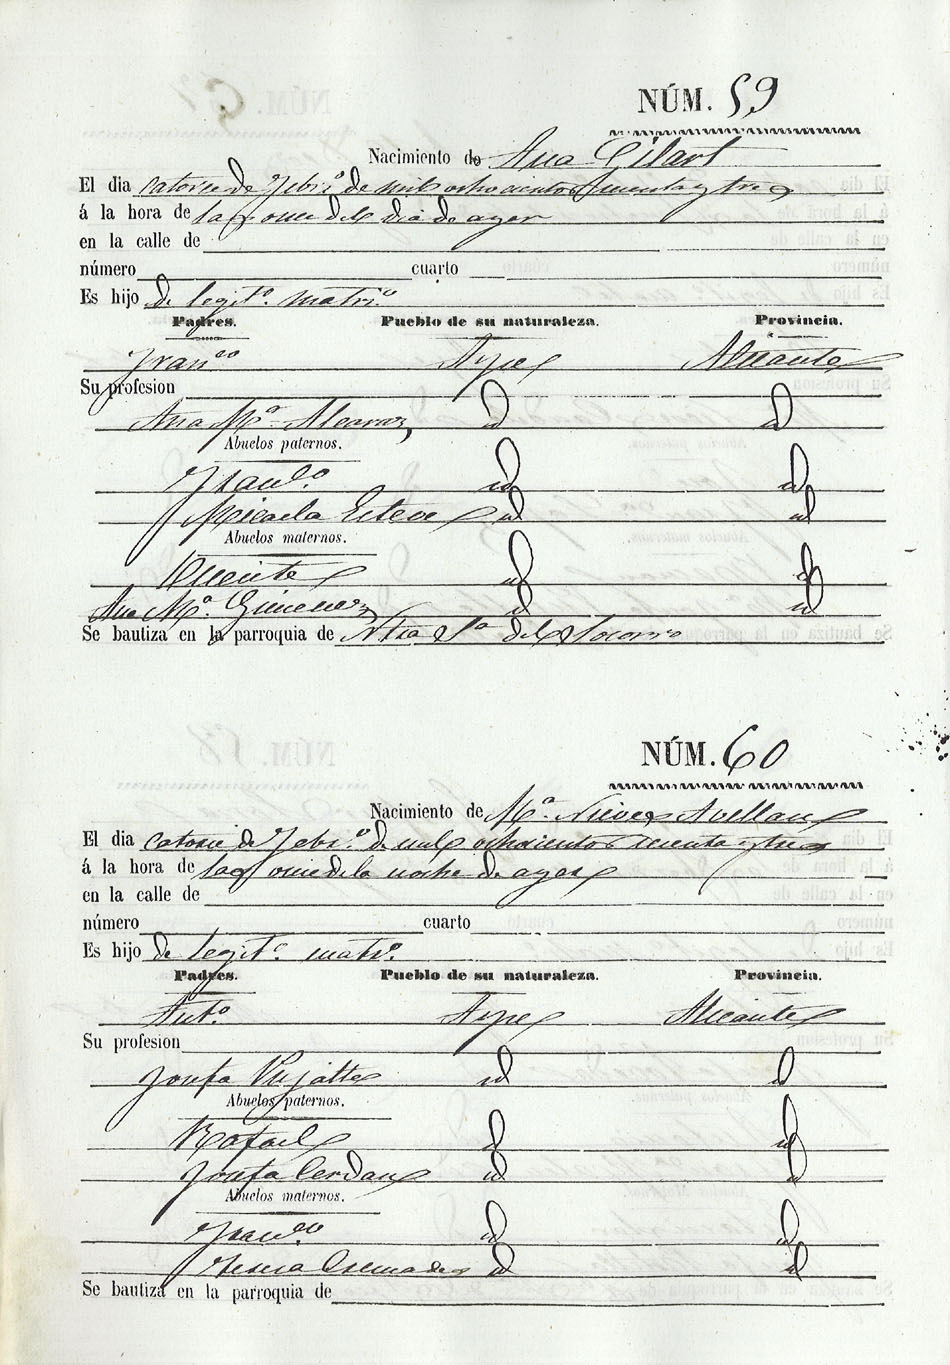 NÚM. 59
Nacimiento de Ana Cilart
El dia catorce de Febr.º de mil ochocientos y tres
á la hora de las once del dia de ayer
en la calle de
número cuarto
Es hijo de legit.º matri.º
Padres. Pueblo de su naturaleza. Provincia.
Fran.co Aspe Alicante
Su profesion
Ana M.ª Alcaraz id id
Abuelos paternos.
Fran.co id id
Micaela Esteve id id
Abuelos maternos.
Vicente id id
Ana M.ª Gimenez id id
Se bautiza en la parroquia de Ntra Sª del Socorro
NÚM. 60
Nacimiento de M.ª Nieves Avellan
El dia catorce de Febr.º de mil ochocientos y tres
á la hora de las once de la noche de ayer
en la calle de
número cuarto
Es hijo de legit.º matr.º
Padres. Pueblo de su naturaleza. Provincia.
Ant.º Aspe Alicante
Su profesion
Josefa Pujalte id id
Abuelos paternos.
Rafael id id
Josefa Cerdan id id
Abuelos maternos.
Fran.co id id
Teresa Cremades id id
Se bautiza en la parroquia de